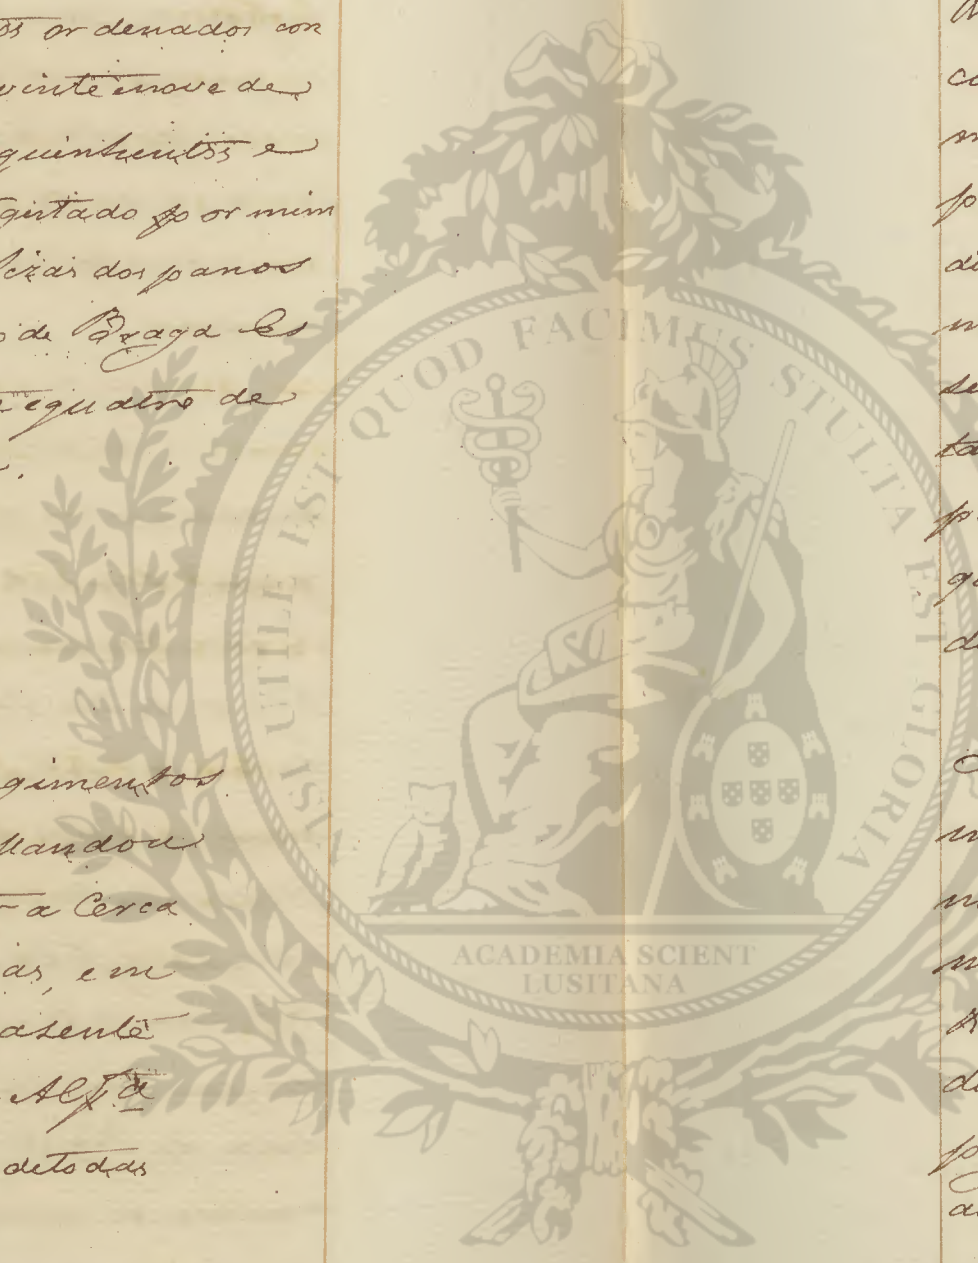 ordenados con
vinte enove de
quinhentos e
gistado por mim
dos panos
de Braga
equatro de
gimentos
Mandou
a Cerca
as, em
asente
Alf.ª
detodas
NISI UTILE EST QUOD FACIMUS STULTA EST GLORIA
ACADEMIA SCIENT
LUSITANA
co
di
se
ta